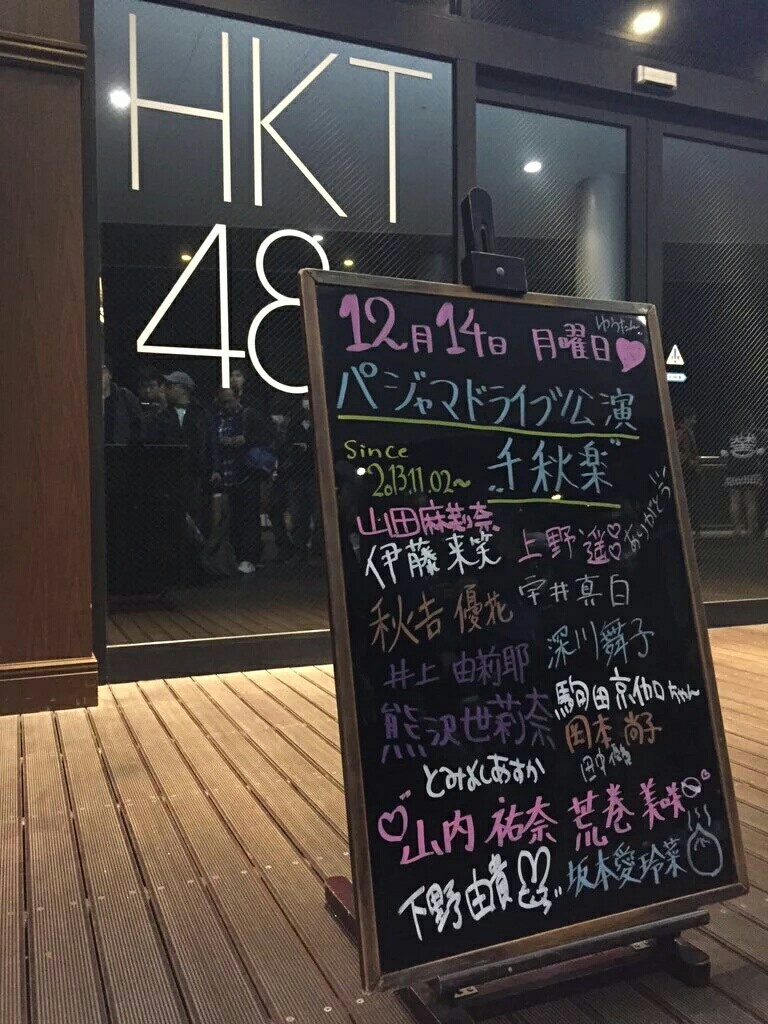 HKT
48
12月14日 月曜日
ゆうたん
パジャマドライブ公演
Since
2013.11.02〜
千秋楽
ありがとう
山田麻莉奈
伊藤来笑
上野遥
秋吉優花
宇井真白
井上由莉耶
深川舞子
熊沢世莉奈
駒田京伽ちゃん
岡本尚子
とみよしあすか
山内祐奈 荒巻美咲
下野由貴
坂本愛玲菜